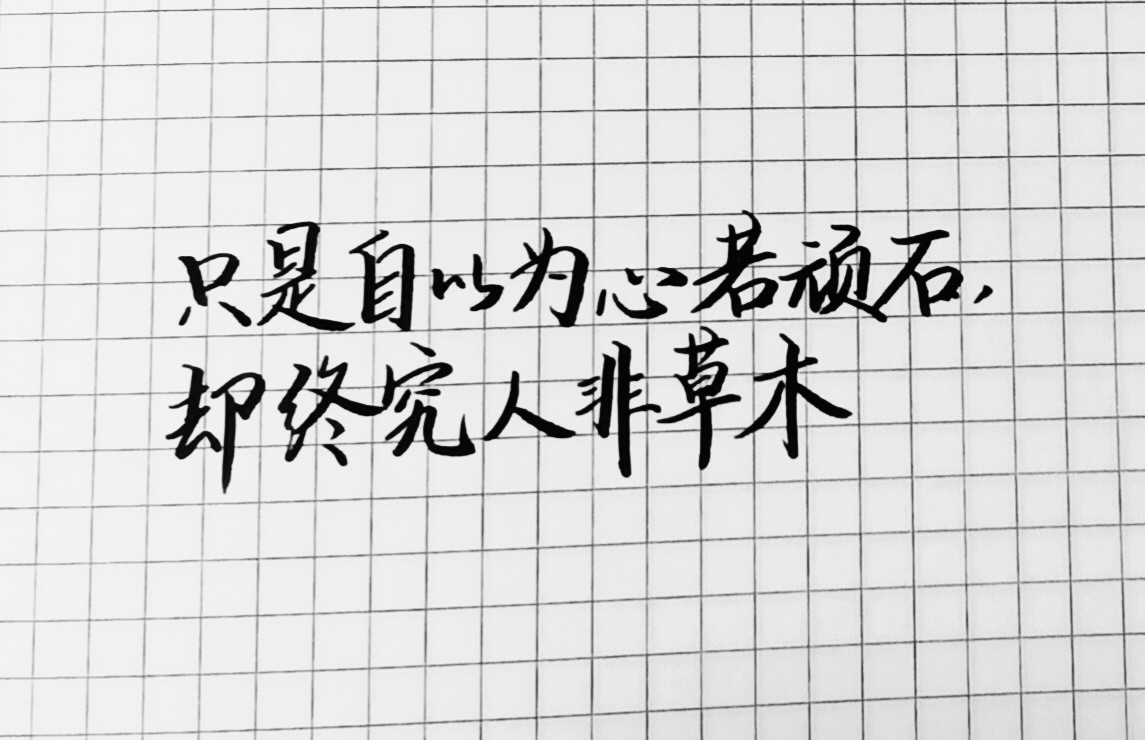 只是自以为心若顽石，
却终究人非草木